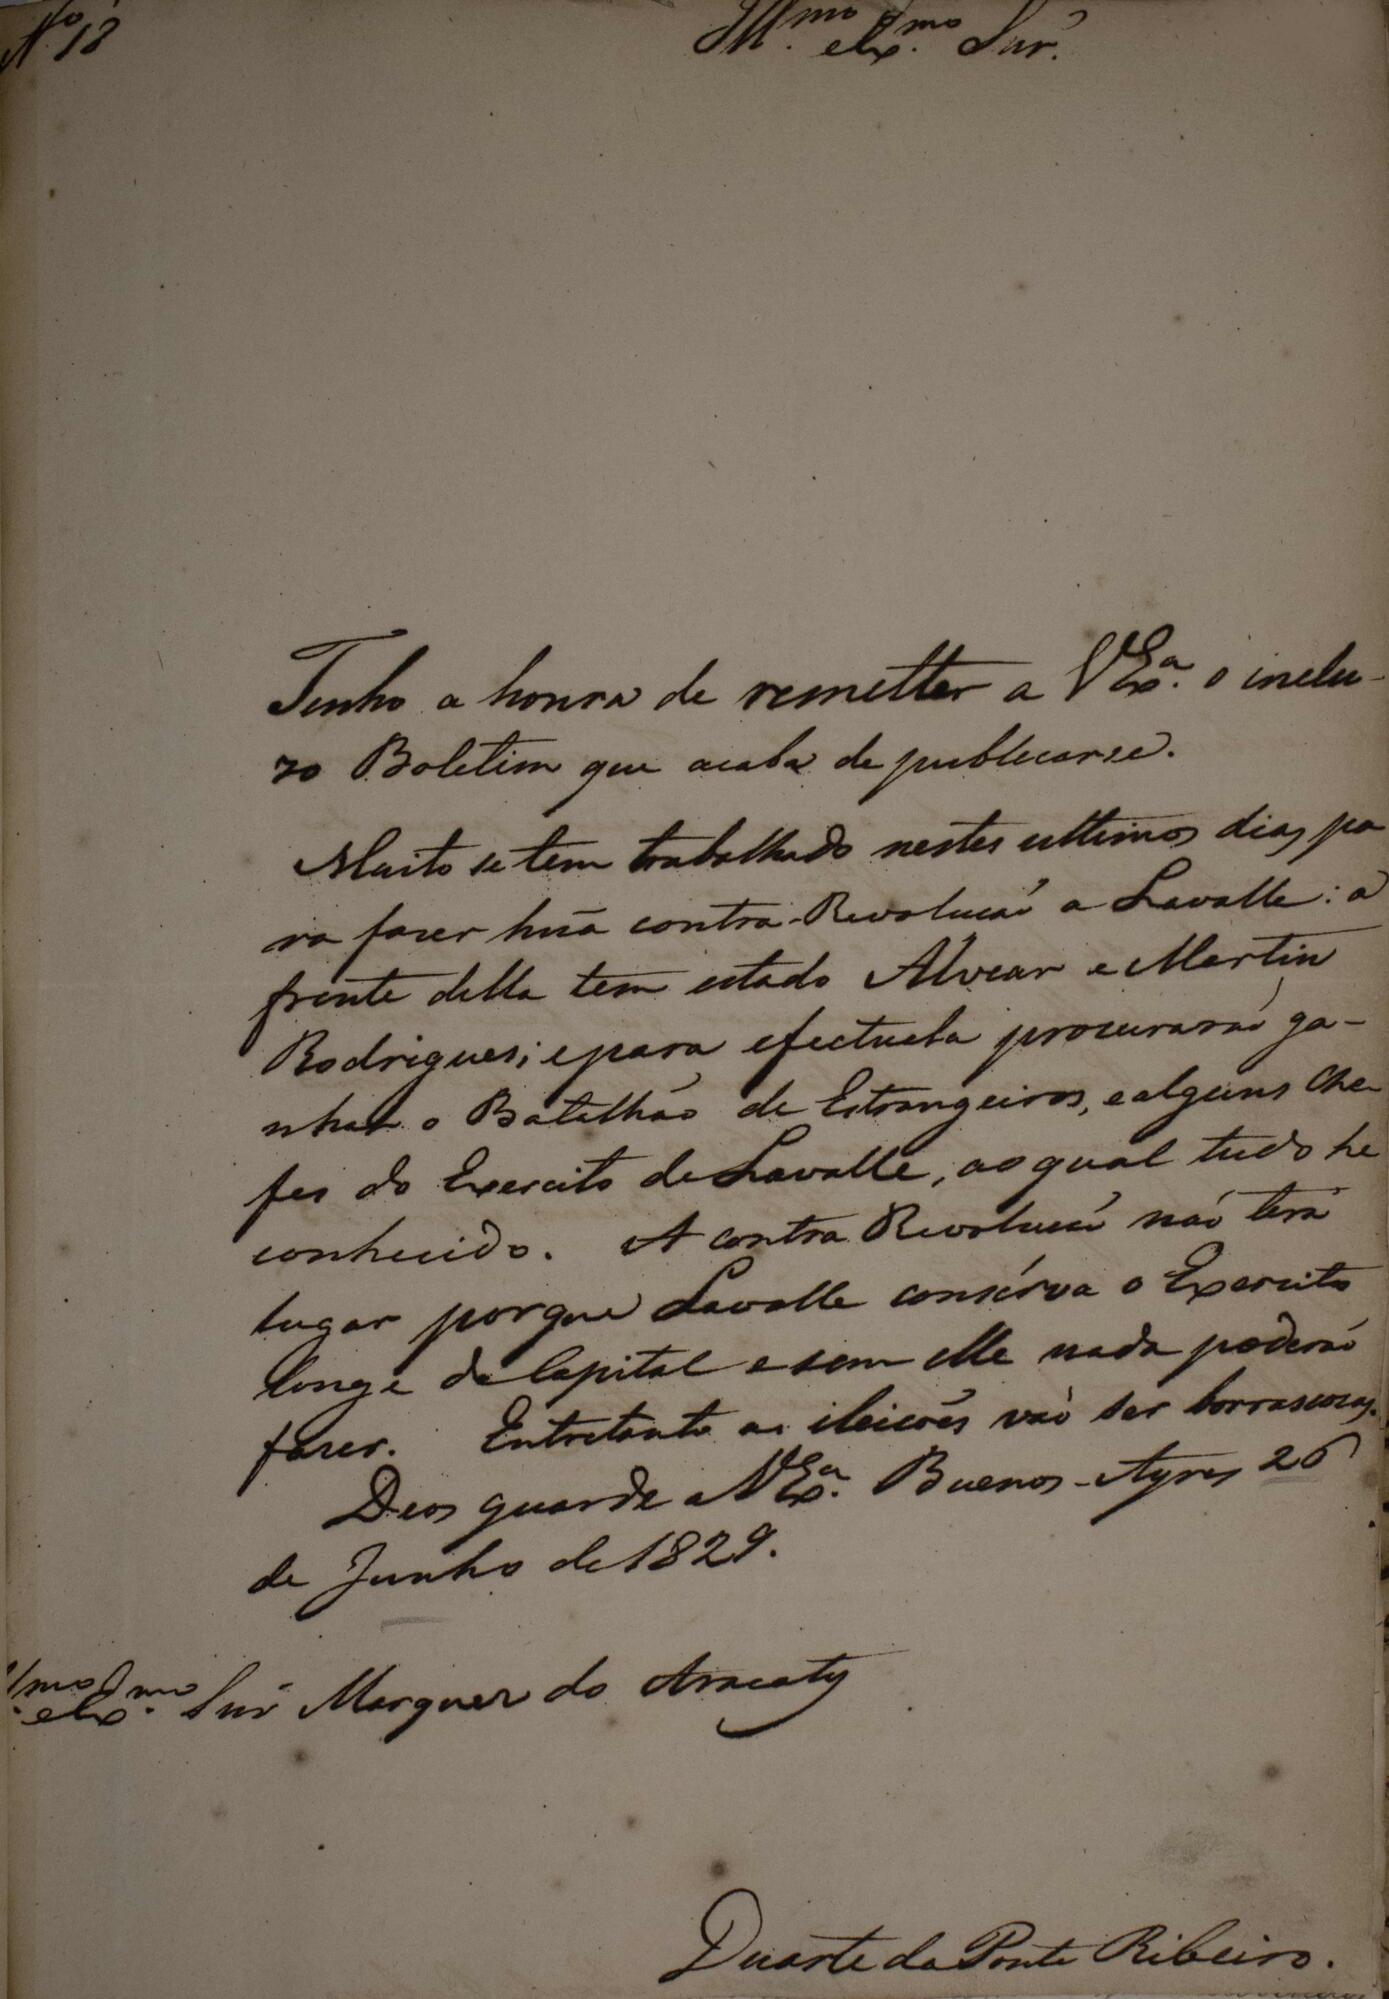 Nº 18
Illmo. e Exmo. Snr.
Tenho a honra de remetter a VExª. o inclu-
zo Boletim que acaba de publicarse.
Muito se tem trabalhado nestes ultimos dias pa
ra fazer hũa contra-Revolucaõ a Lavalle: a
frente della tem estado Alvear e Martin
Rodrigues; e para efectuela procuraraõ ga-
nhar o Batalhão de Estrangeiros, e alguns Che
fes do Exercito de Lavalle, ao qual tudo he
conhecido. A contra Revolucaõ naõ terá
lugar porque Lavalle consérva o Exercito
longe da Capital e sem elle nada poderaõ
fazer. Entretanto as eleicões vaõ ser borrascozas.
Deos guarde a VExª. Buenos-Ayres 26
de Junho de 1829.
Illmo. e Exmo. Snr Marquez do Aracaty
Duarte da Ponte Ribeiro.